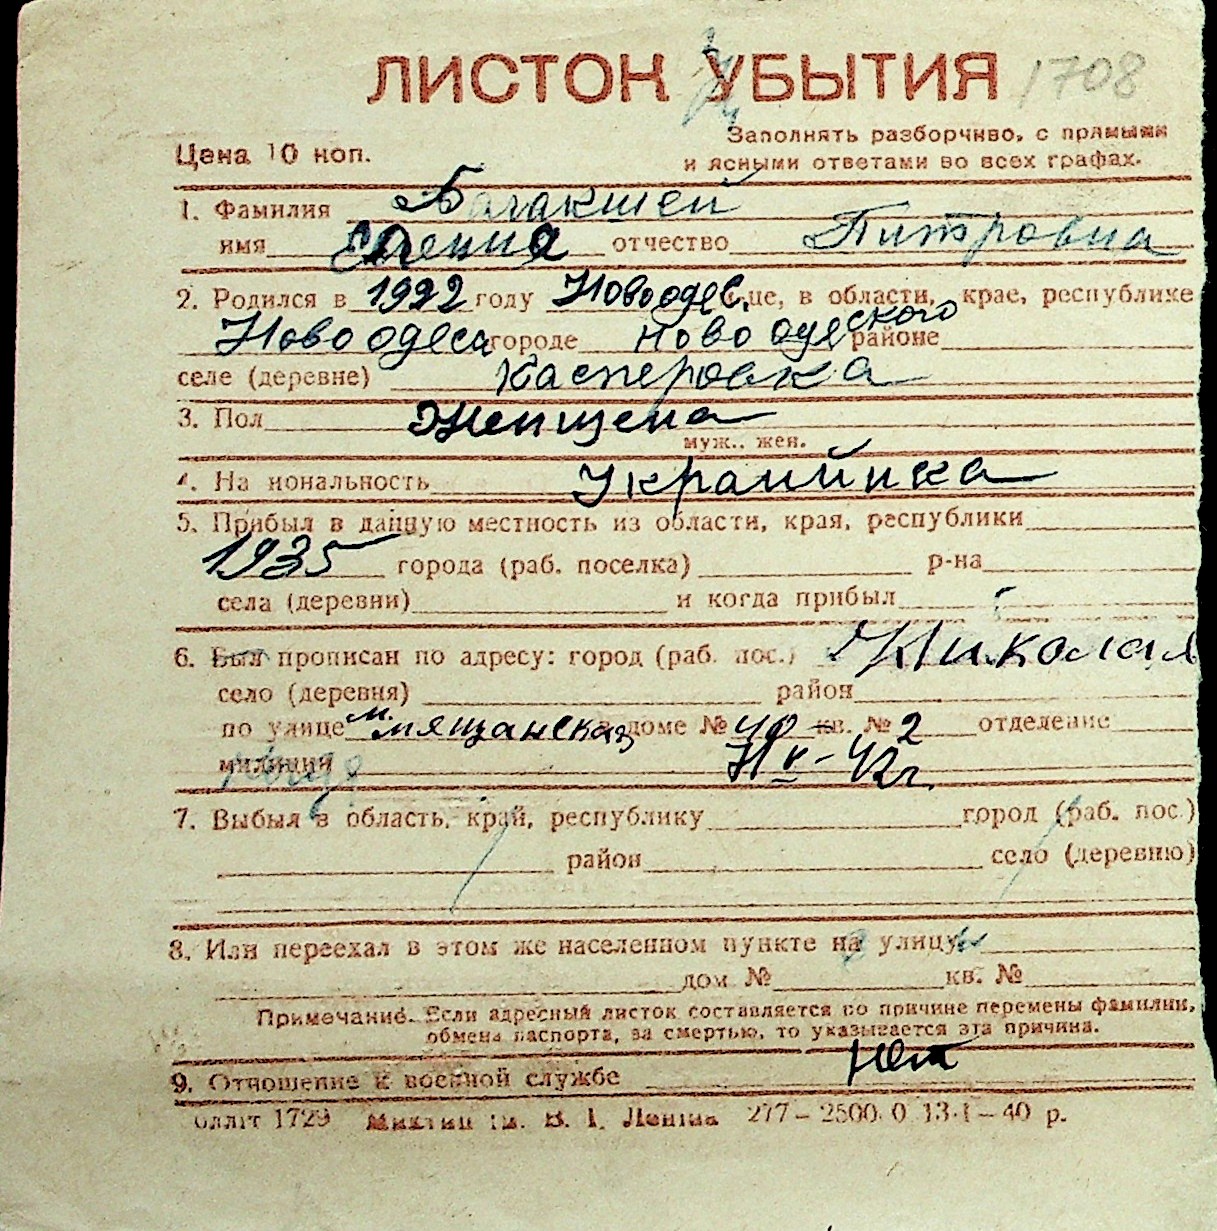 ЛИСТОК УБЫТИЯ 1708
Цена 10 коп.
Заполнять разборчиво, с прямыми
и ясными ответами во всех графах.
1. Фамилия Багакшей
имя отчество Питровна
2. Родился в 1922 году Новоодес. це, в области, крае, республике
Новоодеса городе Новоодеского районе
селе (деревне) Касперовка
3. Пол Женщена
муж., жен.
4. На иональность Украийнка
5. Прибыл в данную местность из области, края, республики
1935 города (раб. поселка) р-на
села (деревни) и когда прибыл
6. Был прописан по адресу: город (раб. пос.) Николая
село (деревня) район
по улице М. мящанская доме № 40 кв. № 2 отделение
милиции
7. Выбыл в область, край, республику город (раб. пос.)
район село (деревню)
8. Или переехал в этом же населенном пункте на улицу
дом № кв. №
Примечание. Если адресный листок составляется по причине перемены фамилии,
обмена паспорта, за смертью, то указывается эта причина.
9. Отношение к военной службе Нет
блліт 1729 ім. В. І. Леніна 277–2500 0 13·I–40 р.